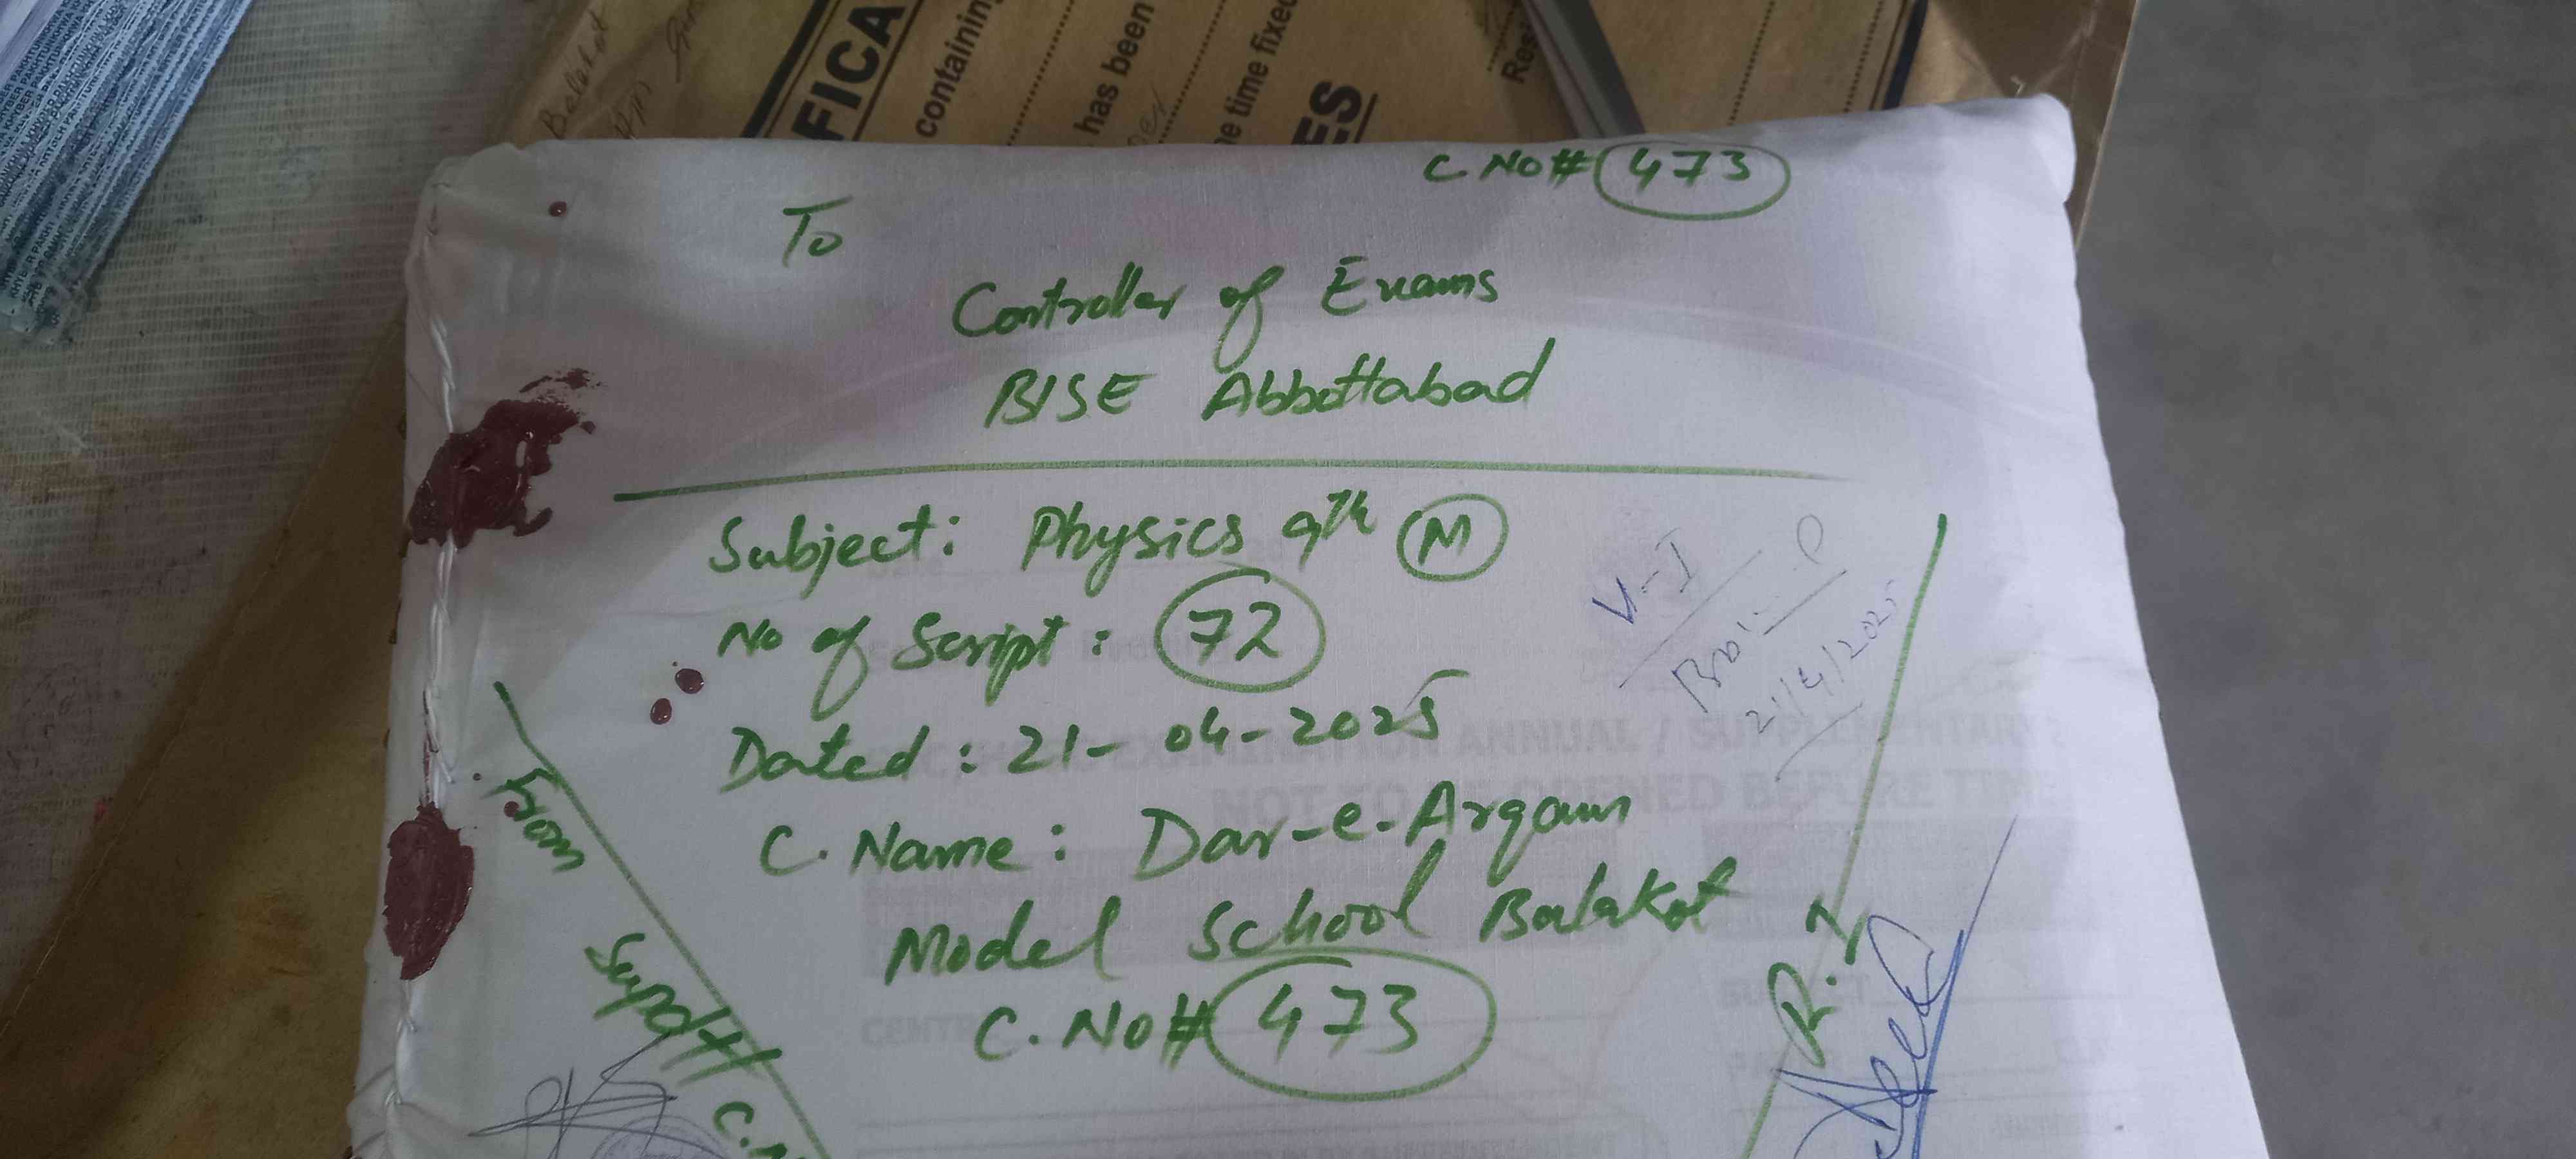 Balakot
FICA
containing
has been
e time fixed
ES
Res
C No# 473
To
Controller of Exams
BISE Abbottabad
Subject: Physics 9th M
No of Script: 72
Dated: 21-04-2025
C. Name: Dar-e-Arqam
Model School Balakot
C. No# 473
V-I
21/4/2025
From
Supdtt
R.I
EXAMINATION ANNUAL / SUPPLEMENTARY
NOT TO BE OPENED BEFORE TIME